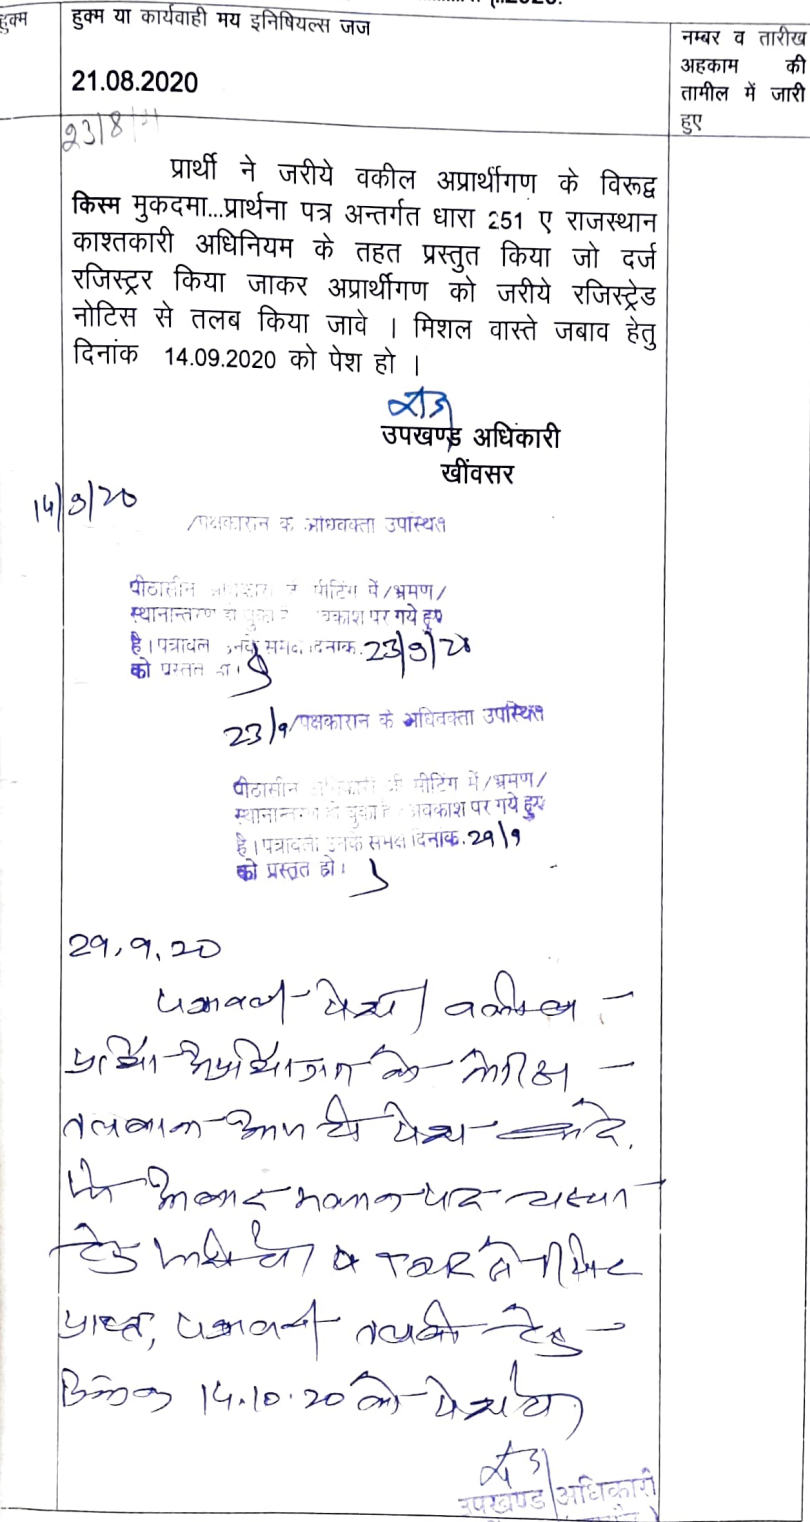 हुक्म
हुक्म या कार्यवाही मय इनिषियल्स जज
21.08.2020
नम्बर व तारीख
अहकाम की
तामील में जारी
हुए
23/8/
प्रार्थी ने जरीये वकील अप्रार्थीगण के विरूद्व
किस्म मुकदमा...प्रार्थना पत्र अन्तर्गत धारा 251 ए राजस्थान
काश्तकारी अधिनियम के तहत प्रस्तुत किया जो दर्ज
रजिस्ट्रर किया जाकर अप्रार्थीगण को जरीये रजिस्ट्रेड
नोटिस से तलब किया जावे । मिशल वास्ते जबाव हेतु
दिनांक 14.09.2020 को पेश हो ।
उपखण्ड़ अधिकारी
खींवसर
14/9/20
/पक्षकारान के अधिवक्ता उपस्थित
पीठासीन मीटिंग में/भ्रमण/
स्थानान्तरण हो चुका है अवकाश पर गये हुए
है। पत्रावली उनके समक्ष दिनांक. 23/9/20
को प्रस्तुत हो।
23/9/पक्षकारान के अधिवक्ता उपस्थित
पीठासीन अधिकारी श्री मीटिंग में/भ्रमण/
स्थानान्तरण हो चुका है अवकाश पर गये हुए
है। पत्रावली उनके समक्ष दिनांक. 29/9
को प्रस्तुत हो।
29.9.20
पत्रावली पेश। वकील
प्रार्थी अप्रार्थीगण के
तलबाना पेश करे.
TDR से रिपोर्ट
प्राप्त, पत्रावली तलबी हेतु
दिनांक 14.10.20 को पेश हो।
उपखण्ड अधिकारी